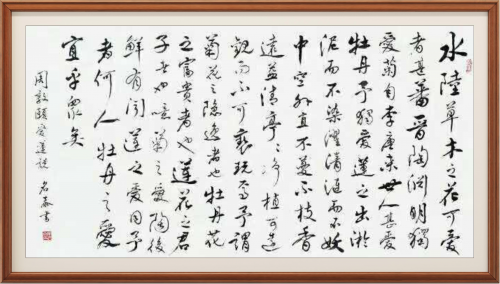 水陸草木之花可愛
者甚蕃晉陶淵明獨
愛菊自李唐来世人甚愛
牡丹予獨愛蓮之出淤
泥而不染濯清漣而不妖
中空外直不蔓不枝香
遠益清亭〻净植可遠
觀而不可褻玩焉予謂
菊花之隐逸者也牡丹花
之富貴者也蓮花之君
子者也噫菊之愛陶後
鮮有聞蓮之愛同予
者何人牡丹之愛
宜乎眾矣
周敦頤愛蓮説